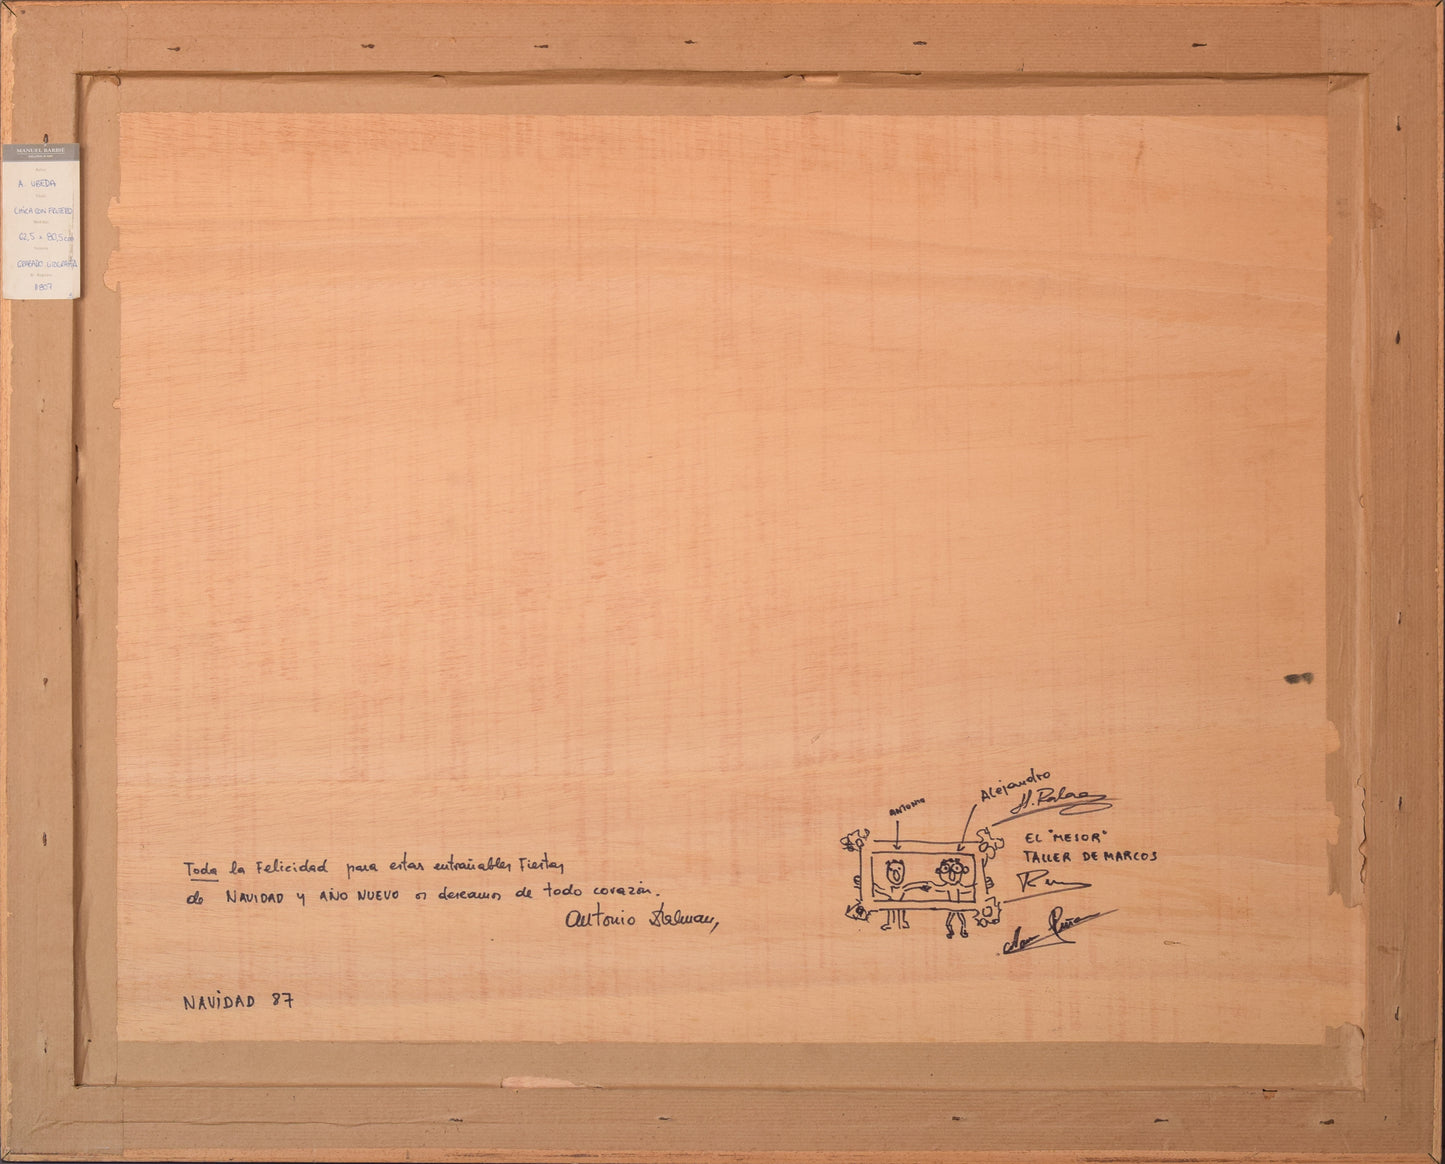 MANUEL BARBIÉ
A. UBEDA
CHICA CON FRUTERO
62,5 x 80,5 cm
GRABADO LITOGRAFIA
11807
Toda la Felicidad para estas entrañables Fiestas
de NAVIDAD y AÑO NUEVO os deseamos de todo corazón.
Antonio
NAVIDAD 87
ANTONIO
Alejandro
EL "MEJOR"
TALLER DE MARCOS